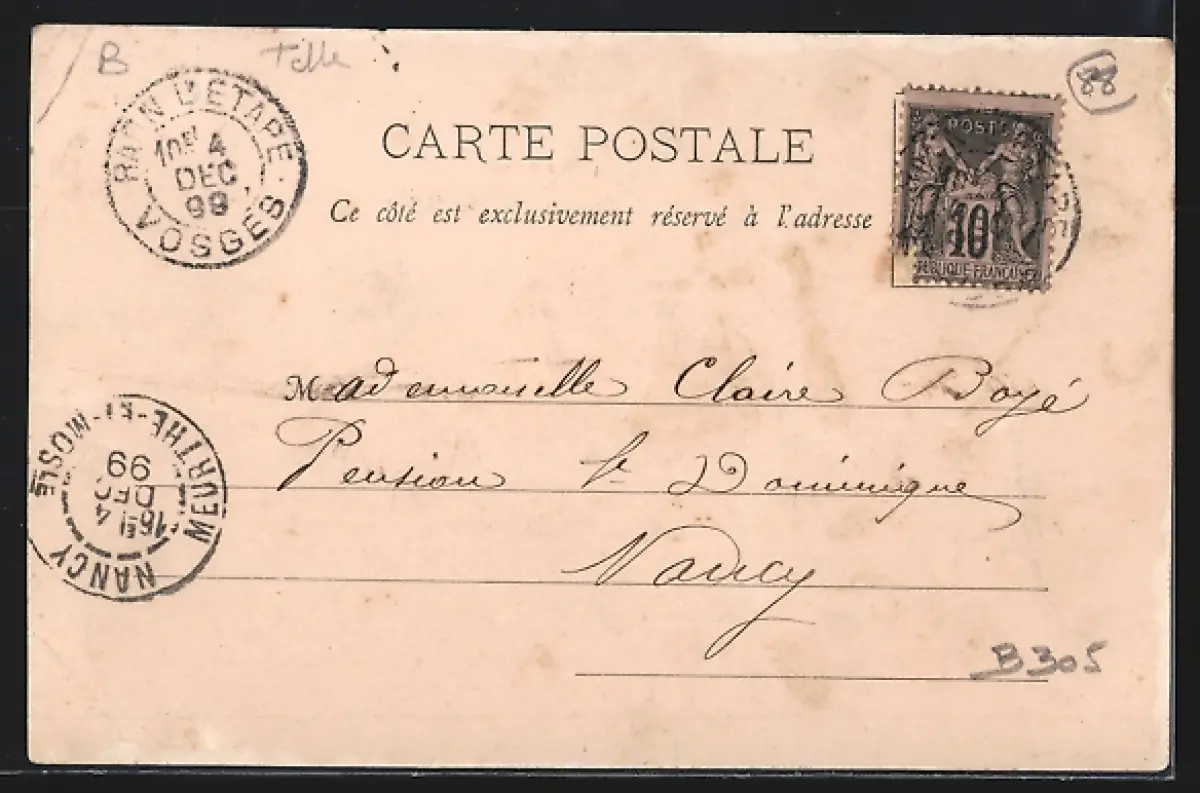 B
88
RAON L'ETAPE
10E 4
DEC
99
VOSGES
CARTE POSTALE
Ce côté est exclusivement réservé à l'adresse
POSTES
10
RÉPUBLIQUE FRANÇAISE
Mademoiselle Claire Boyé
Pension St Dominique
Nancy
MEURTHE-ET-MOSLE
16E 4
DEC
99
NANCY
B305